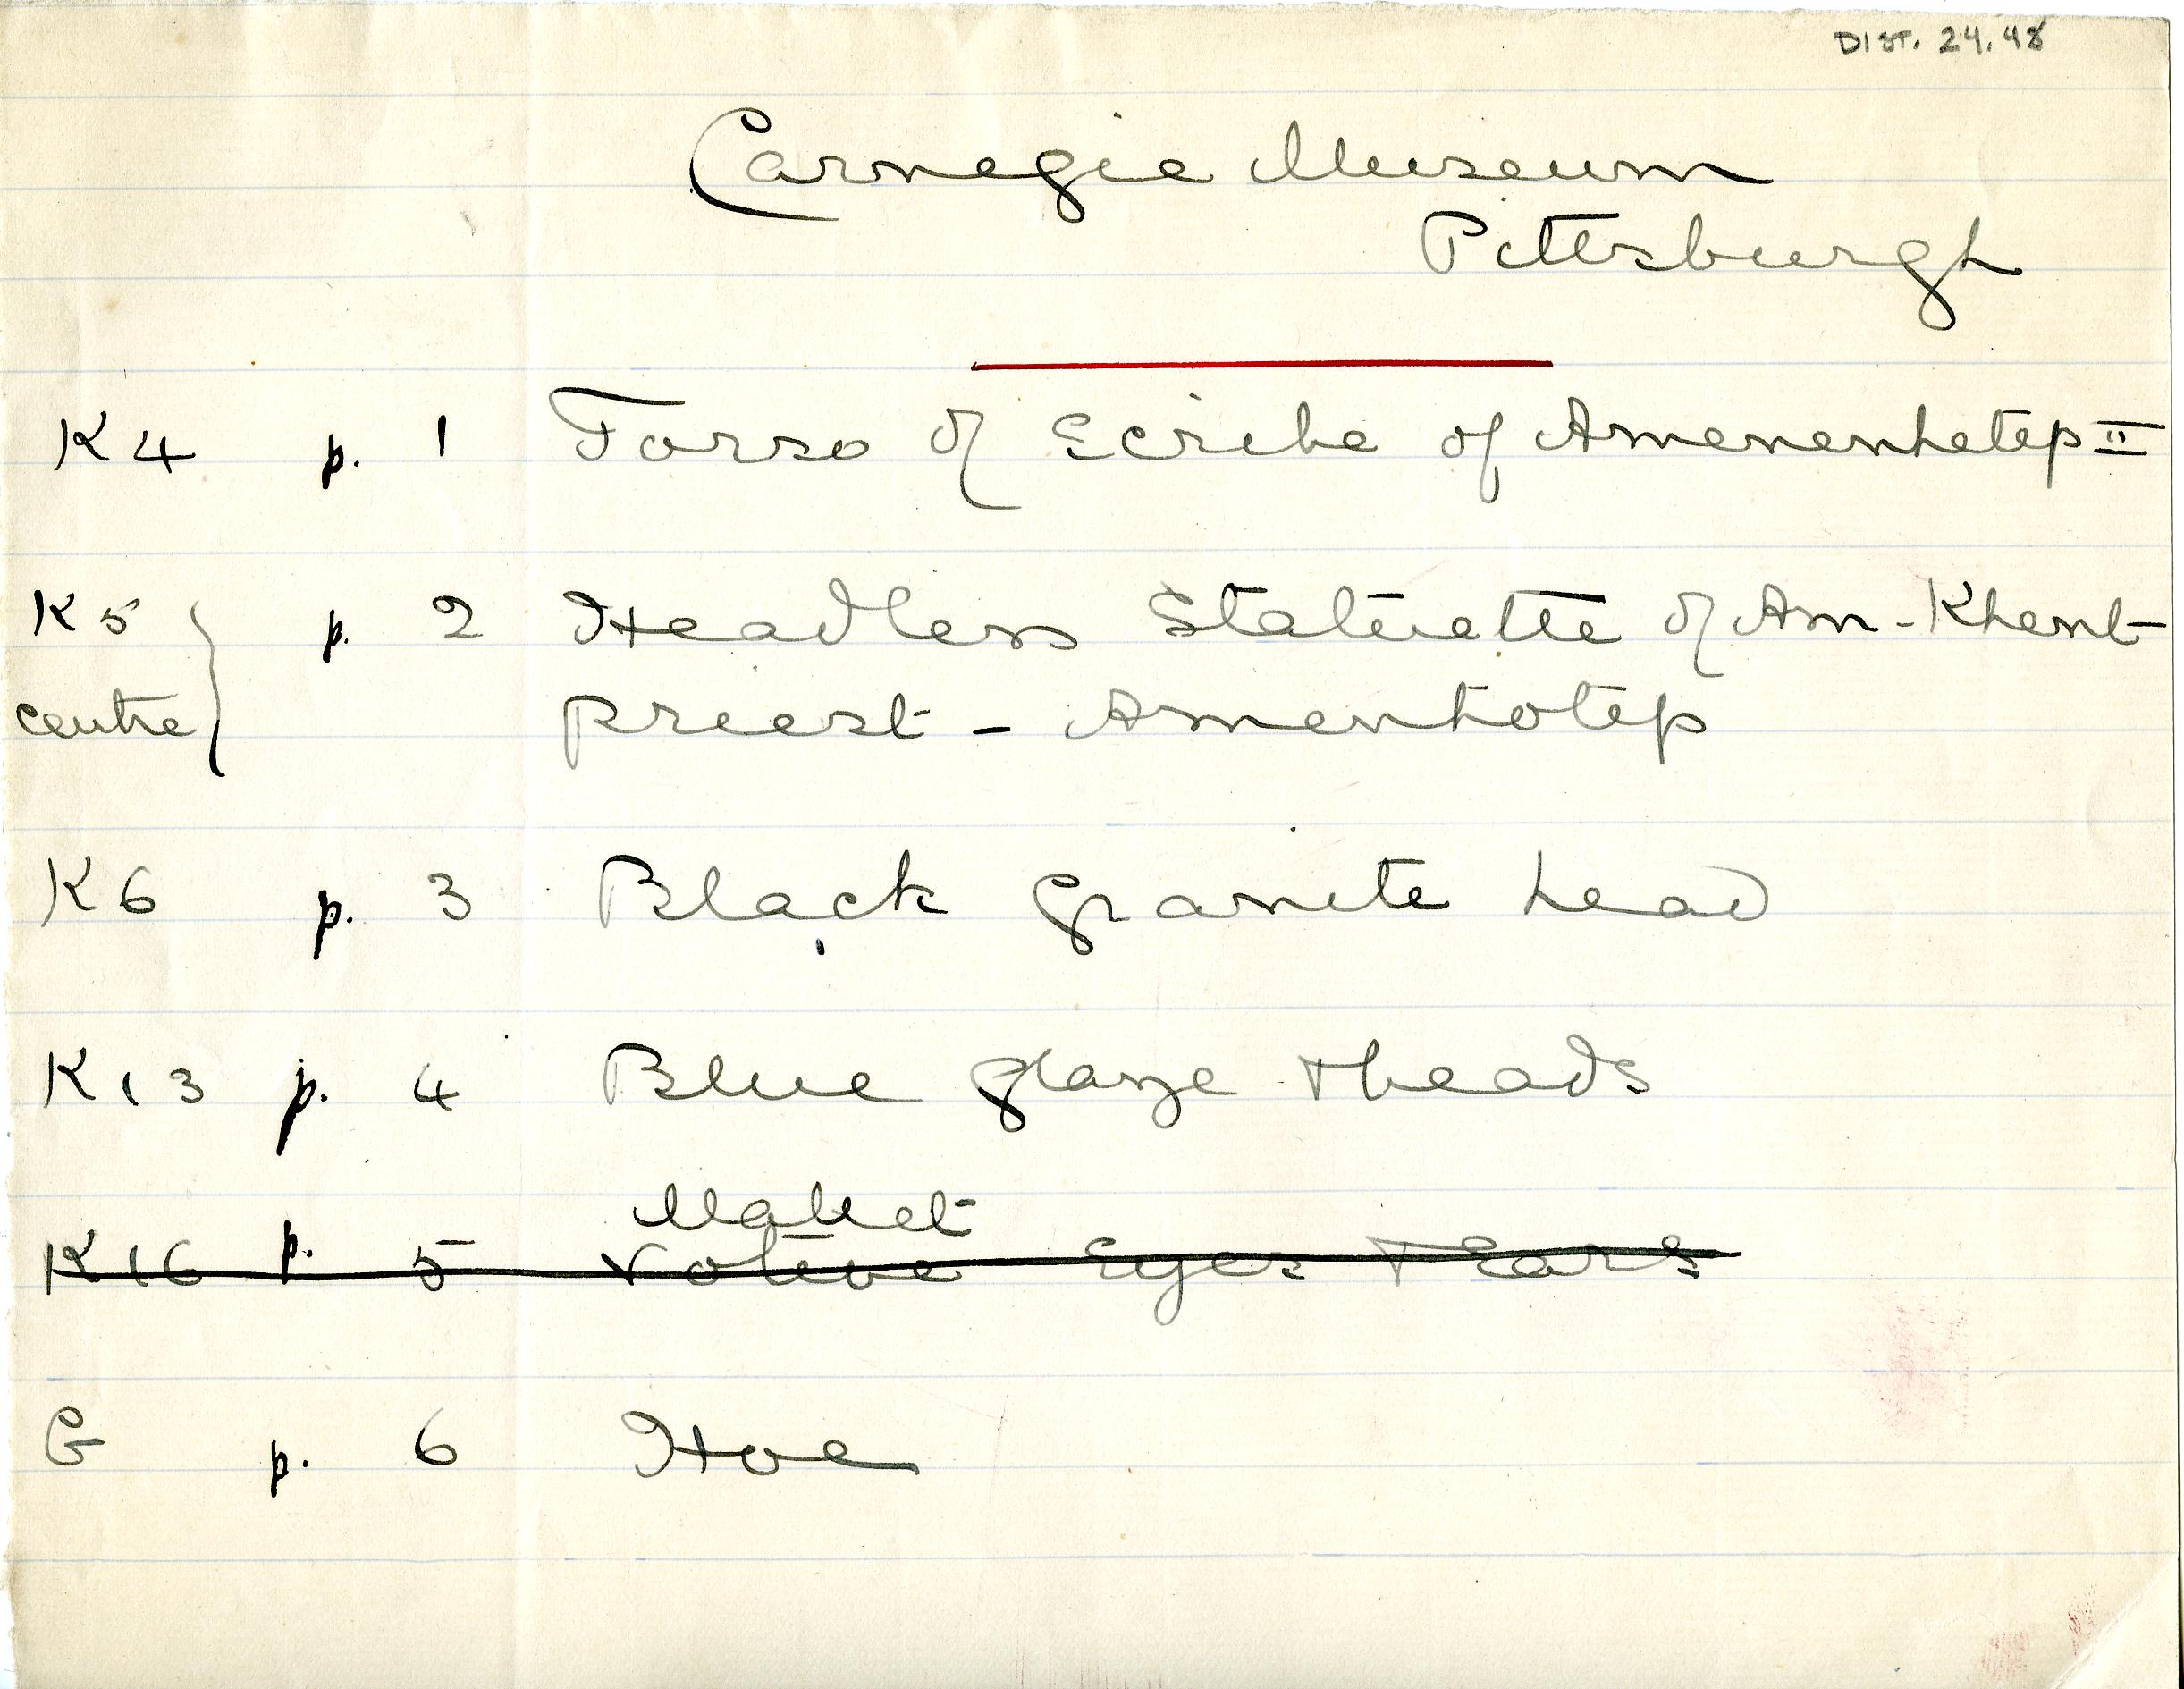 DIST. 24.48
Carnegie Museum
Pittsburgh
K4 p. 1 Torso of Scribe of Amenenhetep II
K5 p. 2 Headless Statuette of Am-Khent
centre priest - Amenhotep
K6 p. 3 Black granite head
K13 p. 4 Blue glaze
K16 p. 5 Votive Eyes Ears
G p. 6 Hoe